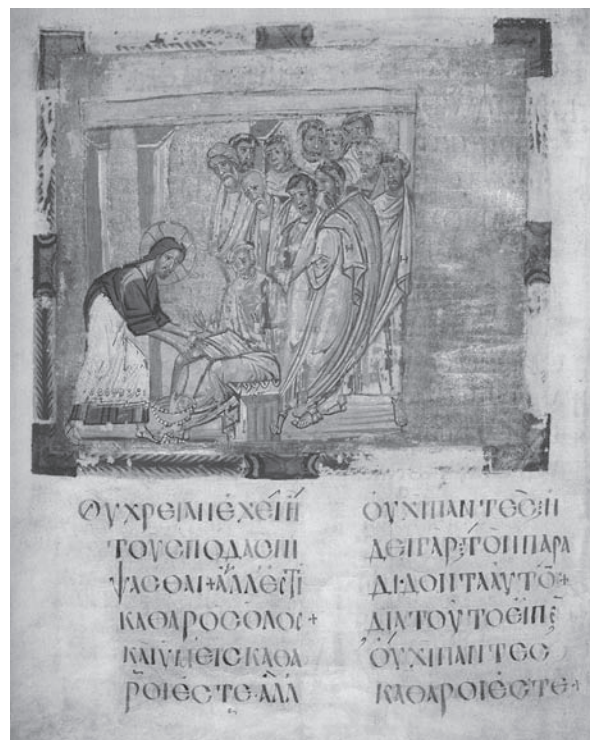 ΟΥΧΡΕΙΑΝΕΧΕΙΗ
ΤΟΥϹΠΟΔΑϹΝΙ
ΨΑϹΘΑΙ+ΑΛΛΕϹΤΙ
ΚΑΘΑΡΟϹΟΛΟϹ+
ΚΑΙΥΜΕΙϹΚΑΘΑ
ΡΟΙΕϹΤΕ·ΑΛΛ
ΟΥΧΙΠΑΝΤΕϹ:Η
ΔΕΙΓΑΡ:ΤΟΝΠΑΡΑ
ΔΙΔΟΝΤΑΑΥΤΟ̅+
ΔΙΑΤΟΥΤΟΕΙΠΕ̅
ΟΥΧΙΠΑΝΤΕϹ
ΚΑΘΑΡΟΙΕϹΤΕ+